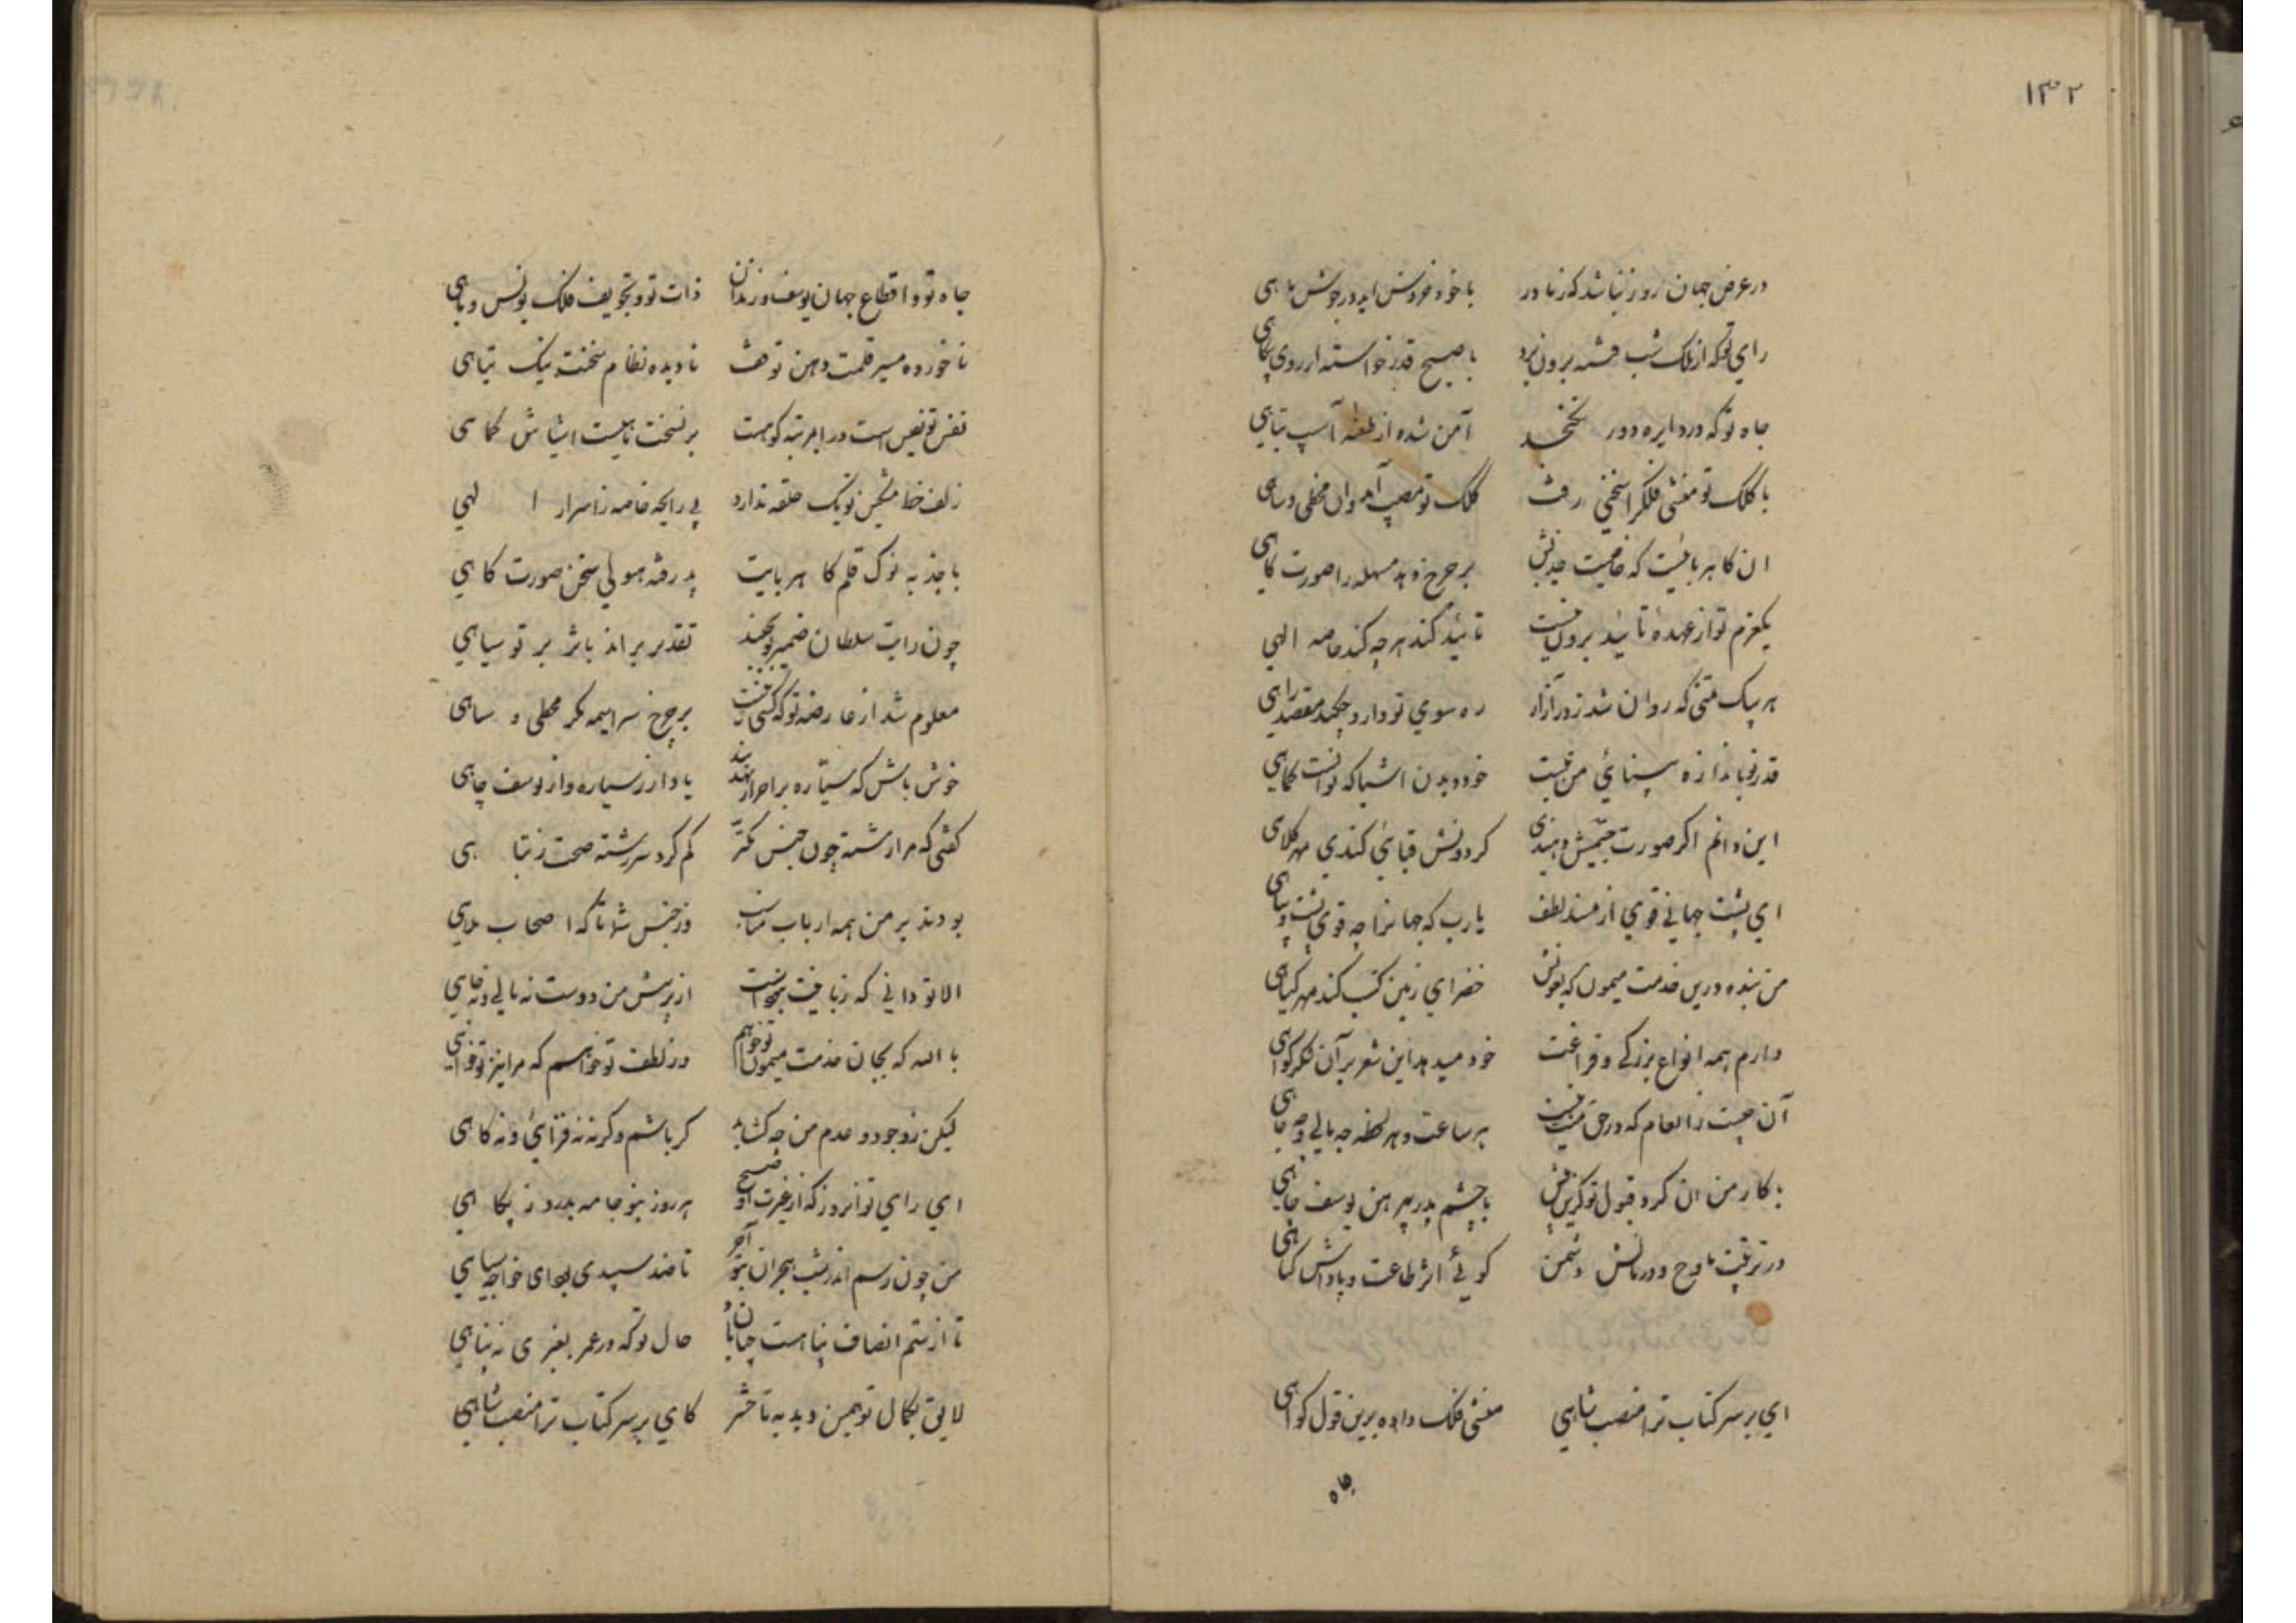 ۱۳۲
در عرض جهان روز نباشد که ز نادر با خود
رای تو که از ملک شب فتنه برون برد با صبح قدر خواسته از روی پگاهی
جاه تو که در دایره دور نگنجد آمن شده از آسیب تباهی
با کلک تو منشی فلک را سخنی رفت کلک تو مصیب آمد و آن مخطی و ساهی
ان کاهرباییست که خاصیت جذبش بر چرخ دهد سنبله را صورت کاهی
یکعزم تو از عهده تائید برون نیست تائید کند هر چه کند خاصه الهی
هر پیک که روان شد ره سوی تو دارد
قدر تو باندازه بینائی من نیست خود دیدن اشیا که توانست کماهی
این دانم اکر صورت جسمیش دهندی کردونش قبایی کندی مهر کلاهی
ای پشت جهانی قوی از مسند لطفت یارب که جهانرا چه قوی پشت و پناهی
من بنده درین خدمت میمون که بعونش خضرای زمین کسب کند مهر کیاهی
دارم همه انواع بزرکی و فراغت خود میدهد این شعر بر آن شکر کواهی
آن چیست ز انعام که در حق منت نیست هر ساعت و هر لحظه چه مالی و چه جاهی
با کار من ان کرد قبول تو کزین پیش با چشم پدر پیرهن یوسف چاهی
در تربیت مادح و در مالش دشمن کوئی اثر طاعت و پاداش کناهی
ای بر سر کتاب ترا منصب شاهی منشی فلک داده برین قول کواهی
جاه
جاه تو و اقطاع جهان یوسف و زندان ذات تو و تجویف فلک یونس و ماهی
ناخورده مسیر قلمت وهن توقف نادیده نظام سخنت ننک تباهی
نفس تو نفیس است در آن مرتبه کو هست بر نسخت ماهیت اشیاش کماهی
زلف خط مشکین تو یک حلقه ندارد بی رایحه خاصه ز اسرار الهی
با جذبه نوک قلم کاهربایت پذرفته هیولی سخن صورت کاهی
چون رایت سلطان ضمیر تو بجنبد تقدیر براند باثر بر تو سیاهی
معلوم شد از عارضه تو که کسی نیست بر چرخ سراسیمه مکر مخطی و ساهی
خوش باش که سیاره بر احرار نهد بند یاد آر ز سیاره و از یوسف چاهی
کفتی که مرا رشته چون جنس مکتر کم کرد سر رشته صحت ز تباهی
بودند بر من همه ارباب مناصب وز جنس شما تا که اصحاب ملاهی
الا تو دانی که ز بافیت نجوانیت از پرسش من دوست نه مالی و نه جاهی
بالله که بجان خدمت میمون تو خواهم وز لطف تو خواسم که مرا نیز تو خواهی
لیکن ز وجود و عدم من چه کشاید کر باشم و کر نه نه فزائی و نه کاهی
ای رای تو آن روز که از غیرت او صبح هر روز بنو جامه بدرد ز پکاهی
من چون رسم اندر شب هجران بتو آخر تا صد سپیدی بود ای خواجه سیاهی
تا از ستم انصاف پناهست جهان را حال تو که در عمر بغیری نه پناهی
لایق بکمال تو همین دید به تا حشر کای بر سر کتاب ترا منصب شاهی